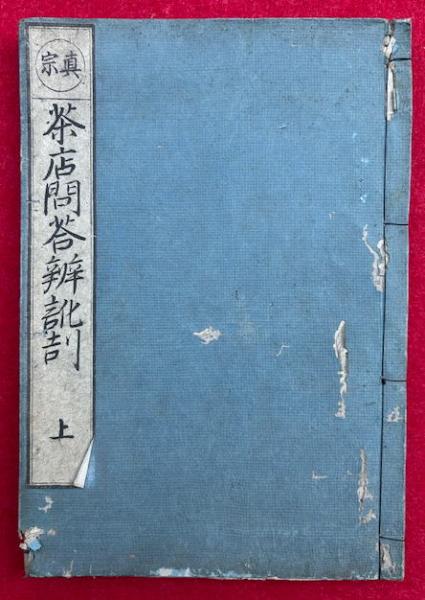 真宗
茶店問答辨訛
上